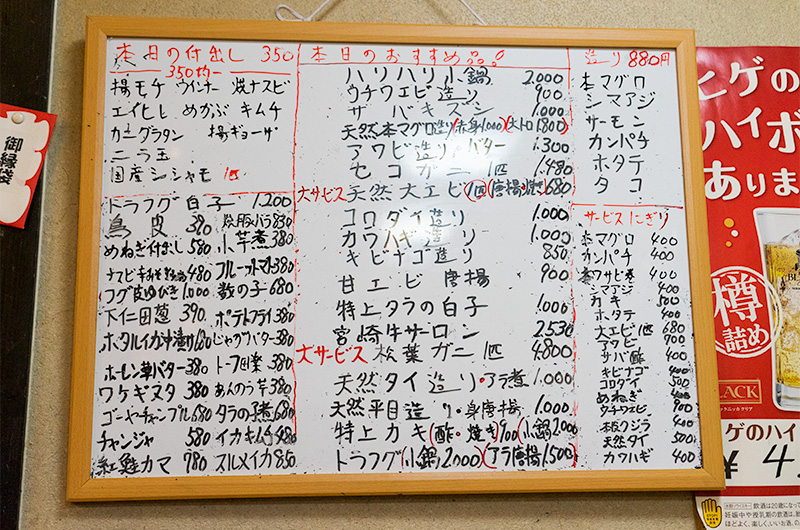 御縁袋
本日の付出し 350
350均一
揚モチ ウインナー 焼ナスビ
エイヒレ めかぶ キムチ
カニグラタン 揚ギョーザ
ニラ玉
国産シシャモ
トラフグ白子 1,200
鳥皮 380
めねぎ付出し 580 小芋煮 380
フルーツトマト 380
フグ皮ゆびき 1,000 数の子 680
下仁田葱 390 ポテトフライ 380
ホタルイカ沖漬け じゃがバター 380
ホーレン草バター 380
ワケギヌタ 380 あんのう芋 380
ゴーヤチャンプル 680 タラの子煮 680
チャンジャ 580 イカキムチ 480
紅鮭カマ 780 スルメイカ 850
本日のおすすめ品!
ハリハリ小鍋 2,000
ウチワエビ造り 900
サバキズシ 1,000
天然本マグロ造り(赤身1,000)(大トロ1,800)
アワビ造り・バター 1,300
セコガニ 匹 1,480
大サービス 天然大エビ(1匹)唐揚 680
コロダイ造り 1,000
カワハギ造り 1,000
キビナゴ造り 850
甘エビ 唐揚 900
特上タラの白子 1,000
宮崎牛サーロン 2,530
大サービス 松葉ガニ 匹 4,800
天然タイ造り・アラ煮 1,000
天然平目造り・身唐揚 1,000
特上カキ(酢・焼き)900(小鍋2,000)
トラフグ(小鍋2,000)(アラ唐揚1,500)
造り 880円
本マグロ
シマアジ
サーモン
カンパチ
ホタテ
タコ
サービスにぎり
本マグロ 400
カンパチ 400
本ワサビ巻 400
シマアジ 400
カキ 500
ホタテ 400
大エビ1匹 680
アワビ 700
サバ酢 400
キビナゴ 400
コロダイ 500
めねぎ 400
ウチワエビ 900
本皮クジラ 400
天然タイ 500
カワハギ 400
ヒゲの
ハイボ
ありま
樽詰め
LACK
ックニッカ クリア
ゲのハイ
¥4
飲酒は20歳になって